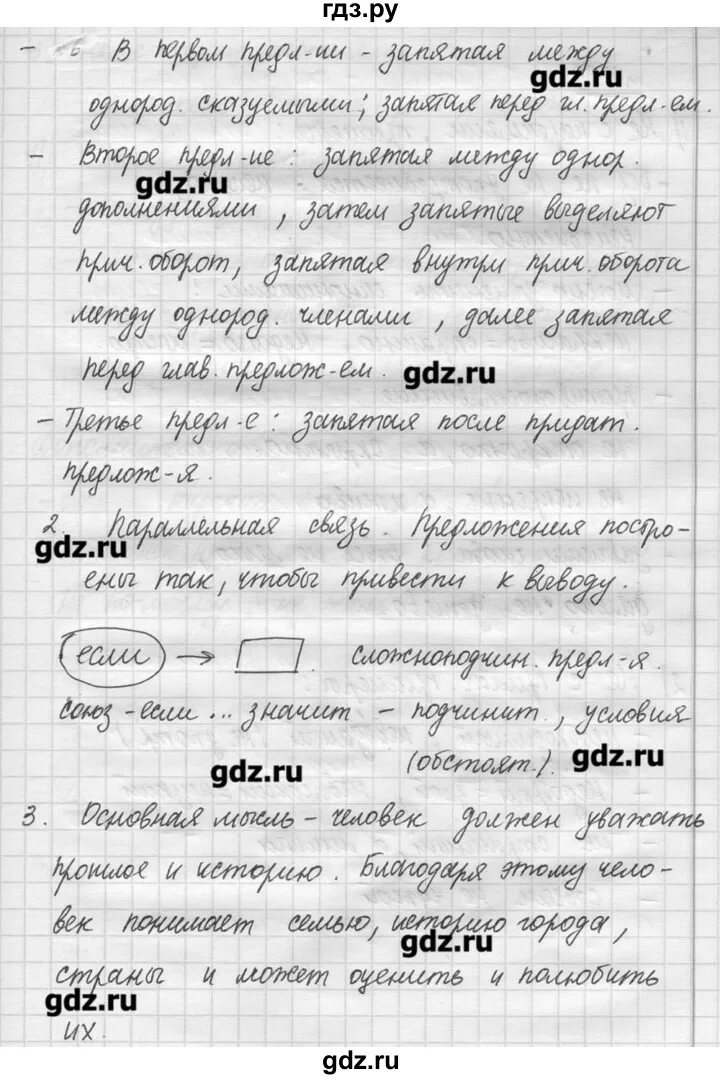 гдз.ру
- В первом предл-ии - запятая между
gdz.ru
однород. сказуемыми; запятая перед гл. предл-ем.
- Второе предл-ие: запятая между однор.
gdz.ru
дополнениями, затем запятые выделяют
прич. оборот, запятая внутри прич. оборота
между однород. членами, далее запятая
перед глав. предлож-ем.
gdz.ru
- Третье предл-е: запятая после придат.
предлож-я.
2. Параллельная связь. Предложения постро-
gdz.ru
ены так, чтобы привести к выводу.
если → . сложноподчин. предл-я.
союз - если ... значит - подчинит., условия
(обстоят.).
gdz.ru
gdz.ru
3. Основная мысль - человек должен уважать
прошлое и историю. Благодаря этому чело-
век понимает семью, историю города,
gdz.ru
страны и может оценить и полюбить
gdz.ru
их.
gdz.ru